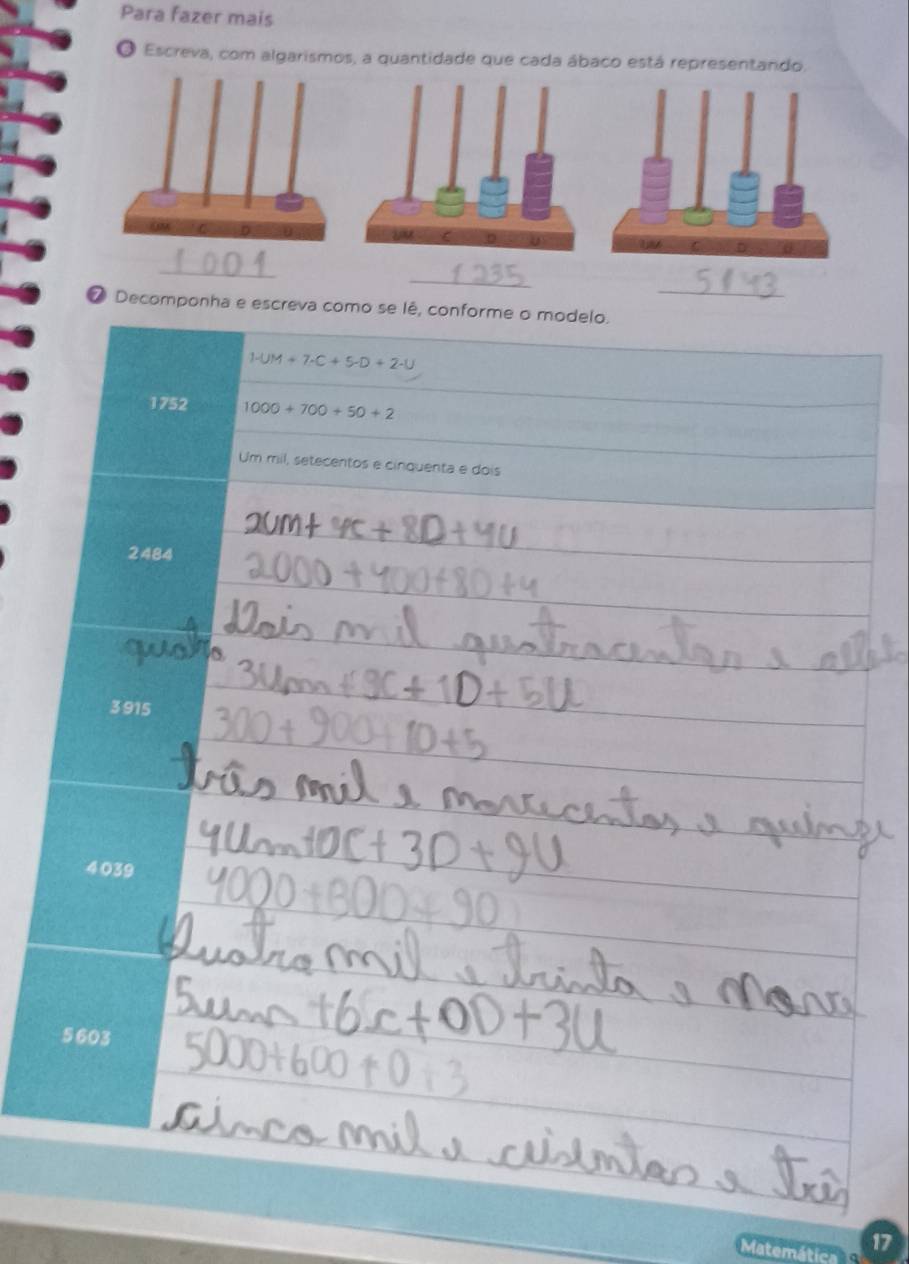 Para fazer mais
6 Escreva, com algarismos, a quantidade que cada ábaco está representando.
UM C D U
UM C D U
UM C D U
1001
1235
5143
7 Decomponha e escreva como se lê, conforme o modelo.
1-UM + 7-C + 5-D + 2-U
1752
1000 + 700 + 50 + 2
Um mil, setecentos e cinquenta e dois
2UM+ 4C + 8D+4U
2484
2000 + 400+80+4
Dois mil quatrocentos e
quatro
3Um+9C+1D+5U
3915
300+900+10+5
três mil e novecentos e quinze
4Um+0C+3D+9U
4039
4000+300+90
Quatro mil e trinta e nove
5um+6c+0D+3U
5603
5000+600+0+3
cinco mil e ceisentos e três
Matemática
17